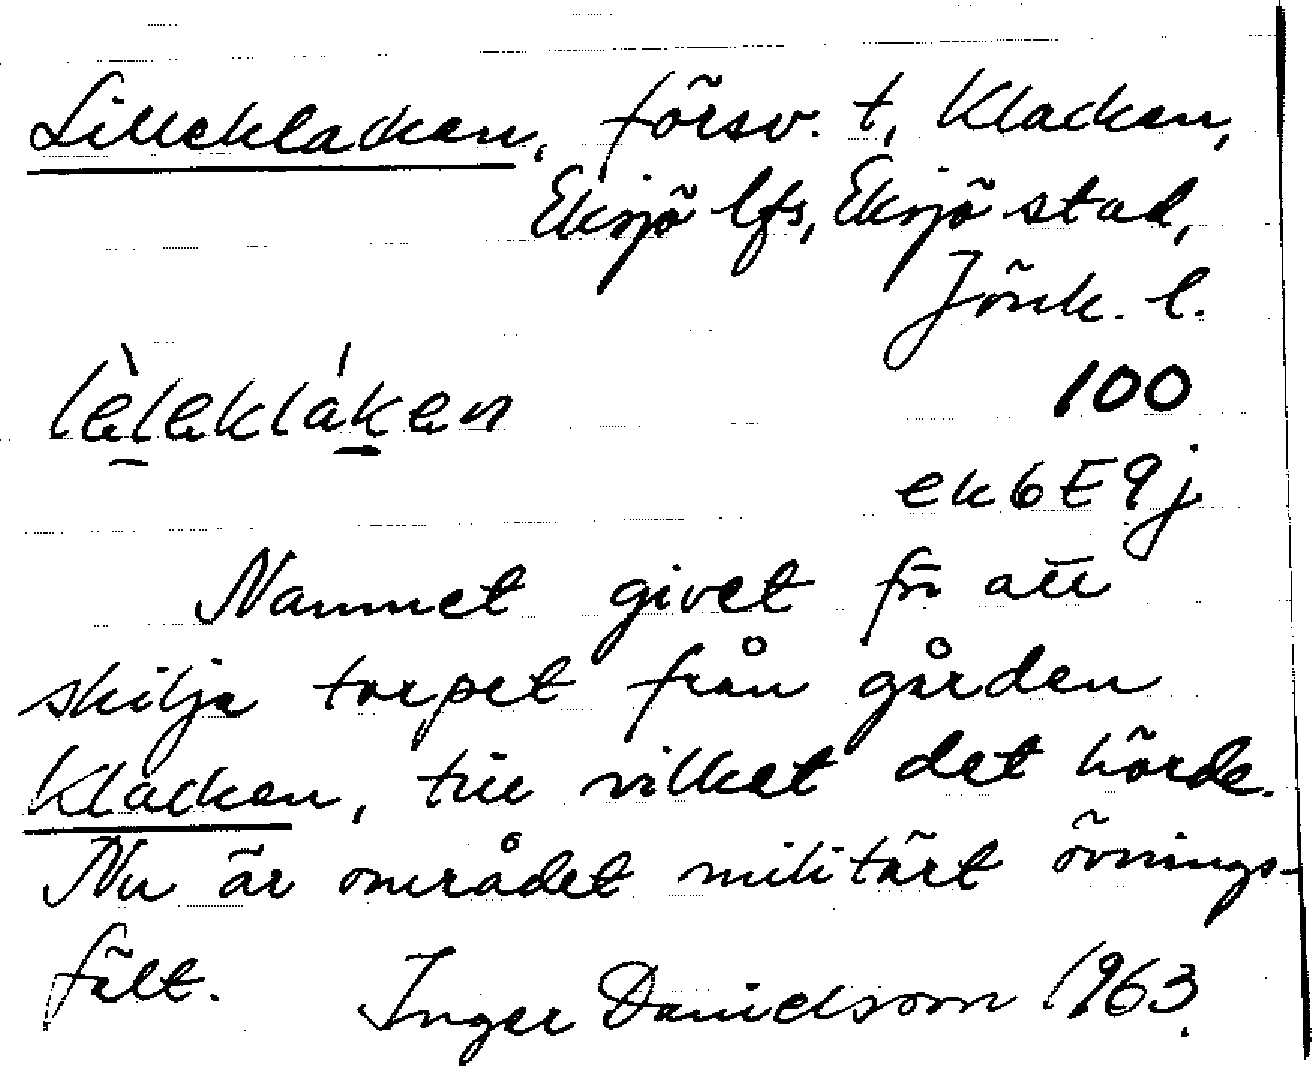 Lilleklacken, försv. t, Klacken,
Eksjö lfs, Eksjö stad,
Jönk. l.
lèlekláken
100
ek 6E9j
Namnet givet för att
skilja torpet från gården
Klacken, till vilket det hörde.
Nu är området militärt övnings-
fält. Inger Danielsson 1963.